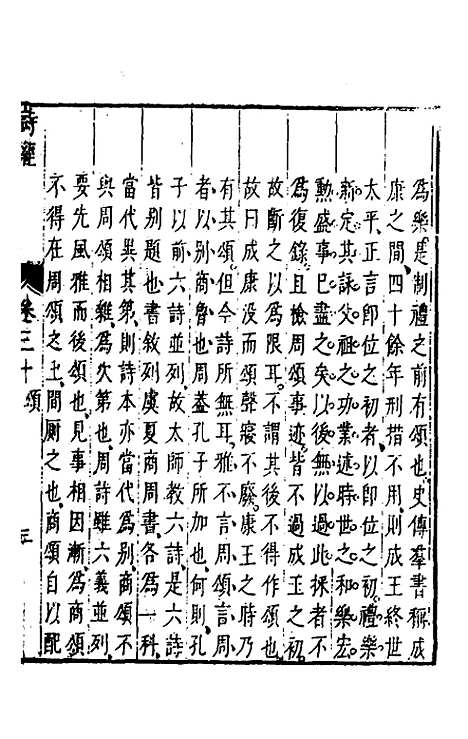 為樂是制禮之前有頌也史傳羣書稱成
康之間四十餘年刑措不用則成王終世
太平正言卽位之初者以卽位之初禮樂
新定其詠父祖之功業述時世之和樂宏
勲盛事已盡之矣以後無以過此採者不
為復錄且檢周頌事迹皆不過成王之初
故斷之以為限耳不謂其後不得作頌也
故曰成康没而頌聲寢不廢康王之時乃
有其頌但今詩所無耳雅不言周頌言周
者以别商魯也周蓋孔子所加也何則孔
子以前六詩並列故太師教六詩是六詩
皆别題也書敘列虞夏商周書各為一科
當代異其第則詩本亦當代為别商頌不
與周頌相雜為次第也周詩雖六義並列
要先風雅而後頌也見事相因漸為商頌
不得在周頌之上間厠之也商頌自以配
卷三十 頌